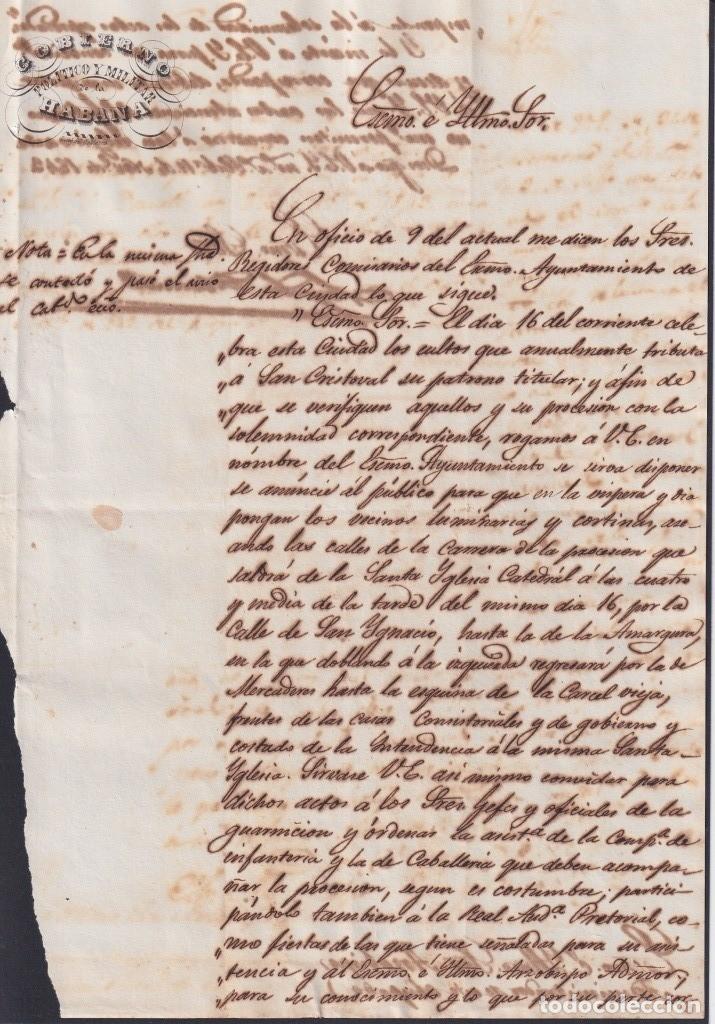 GOBIERNO
POLITICO Y MILITAR
de la
HABANA
Escmo. é Yltmo. Sor.
En oficio de 9 del actual me dicen los Sres.
Regidores Comisarios del Escmo. Ayuntamiento de
esta Ciudad lo que sigue.
Nota = En la misma fhã.
se contestó y pasó el aviso
al cab.do ecco.
„ Escmo. Sor. = El dia 16 del corriente cele-
„bra esta Ciudad los cultos que anualmente tributa
„á San Cristoval su patrono titular; y áfin de
„que se verifiquen aquellos y su procesion con la
solemnidad correspondiente, rogamos á V.E. en
nómbre del Escmo. Ayuntamiento se sirva disponer
se anúncie ál público para que en la vispera y dia
pongan los vecinos luminarias y cortinas, ase-
ando las calles de la carrera de la procesion que
saldrá de la Santa Yglesia Catedrál á las cuatro
y media de la tarde del mismo dia 16, por la
Calle de San Ygnacio, hasta la de la Amargura,
en la que doblando á la izquierda regresará por la de
Mercaderes hasta la esquina de la Carcel vieja,
frentes de las casas Consistoriales y de gobierno y
costado de la Intendencia á la misma Santa
Yglesia. Sirvase V.E. asi mismo convidar para
dichos actos á los Sres Gefes y oficiales de la
guarnicion y órdenar la asist.a de la Comp.a de
infanteria y la de Caballeria que deben acompa-
ñar la procesion, segun es costumbre; partici-
pándolo tambien á la Real Aud.a Pretorial, co-
„mo fiestas de las que tiene señaladas para su asis-
„tencia y ál Escmo. é Yltmo. Arzobispo Admor,
„para su conocimiento y lo que por su parte
todocoleccion